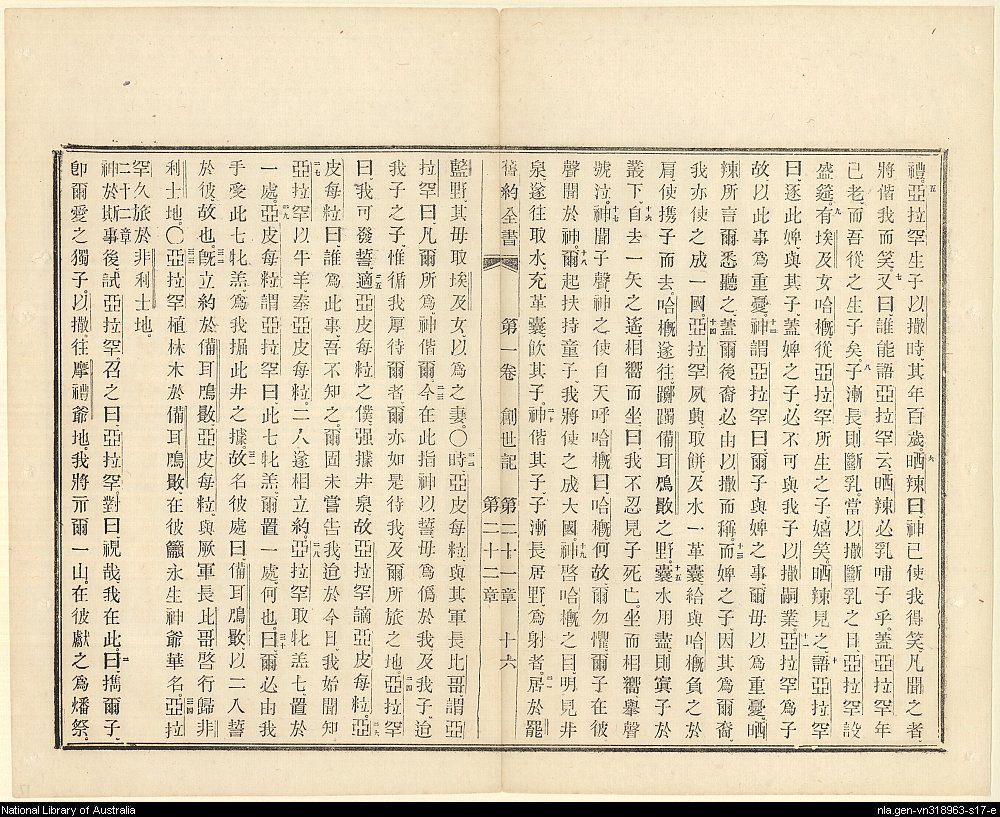 禮。五亞拉罕生子以撒時、其年百歲。六晒辣曰、神已使我得笑、凡聞之者、
將偕我而笑。七又曰、誰能語亞拉罕云、晒辣必乳哺子乎。蓋亞拉罕年
已老、而吾從之生子矣。八子漸長則斷乳。當以撒斷乳之日、亞拉罕設
盛筵。九有埃及女哈概從亞拉罕所生之子嬉笑、晒辣見之、十語亞拉罕
曰、逐此婢與其子、蓋婢之子、必不可與我子以撒嗣業。十一亞拉罕爲子
故以此事爲重憂。十二神謂亞拉罕曰、爾子與婢之事、爾毋以爲重憂、晒
辣所言、爾悉聽之、蓋爾後裔必由以撒而稱。十三而婢之子、因其爲爾裔、
我亦使之成一國。十四亞拉罕夙興、取餅及水一革囊給與哈概負之於
肩、使攜子而去。哈概遂往、躑躅備耳鳲䑂之野。十五囊水用盡、則寘子於
叢下、十六自去一矢之遙、相嚮而坐、曰、我不忍見子死亡。坐而相嚮舉聲
號泣。十七神聞子聲、神之使自天呼哈概曰、哈概何故、爾勿懼、爾子在彼
聲聞於神。十八爾起扶持童子、我將使之成大國。十九神啓哈概之目、明見井
泉、遂往取水、充革囊飲其子。二十神偕其子、子漸長居野、爲射者。二一居於罷
舊約全書 第一卷 創世記 第二十一章 第二十二章 十六
藍野、其母取埃及女、以爲之妻。〇二二時、亞皮每粒、與其軍長比哥謂亞
拉罕曰、凡爾所爲、神偕爾。二三今在此指神以誓、毋爲僞於我、及我子、迨
我子之子、惟循我厚待爾者、爾亦如是待我、及爾所旅之地。二四亞拉罕
曰、我可發誓。二五適亞皮每粒之僕、强據井泉、故亞拉罕謫亞皮每粒。二六亞
皮每粒曰、誰爲此事、吾不知之。爾固未嘗告我、迨於今日、我始聞知。
二七亞拉罕以牛羊奉亞皮每粒。二人遂相立約。二八亞拉罕取牝羔七置於
一處。二九亞皮每粒謂亞拉罕曰、此七牝羔、爾置一處、何也。三十曰、爾必由我
手受此七牝羔、爲我據此井之據。三一故名彼處曰備耳鳲䑂、以二人誓
於彼故也。三二旣立約於備耳鳲䑂、亞皮每粒、與厥軍長比哥啓行歸非
利士地。〇三三亞拉罕植林木於備耳鳲䑂、在彼籲永生神爺華名。三四亞拉
罕久旅於非利士地。
二十二章
神於斯事後、試亞拉罕、召之曰、亞拉罕、對曰、視哉、我在此。二曰、攜爾子、
卽爾愛之獨子、以撒、往摩禮爺地。我將示爾一山。在彼獻之爲燔祭。
National Library of Australia
nla.gen-vn318963-s17-e